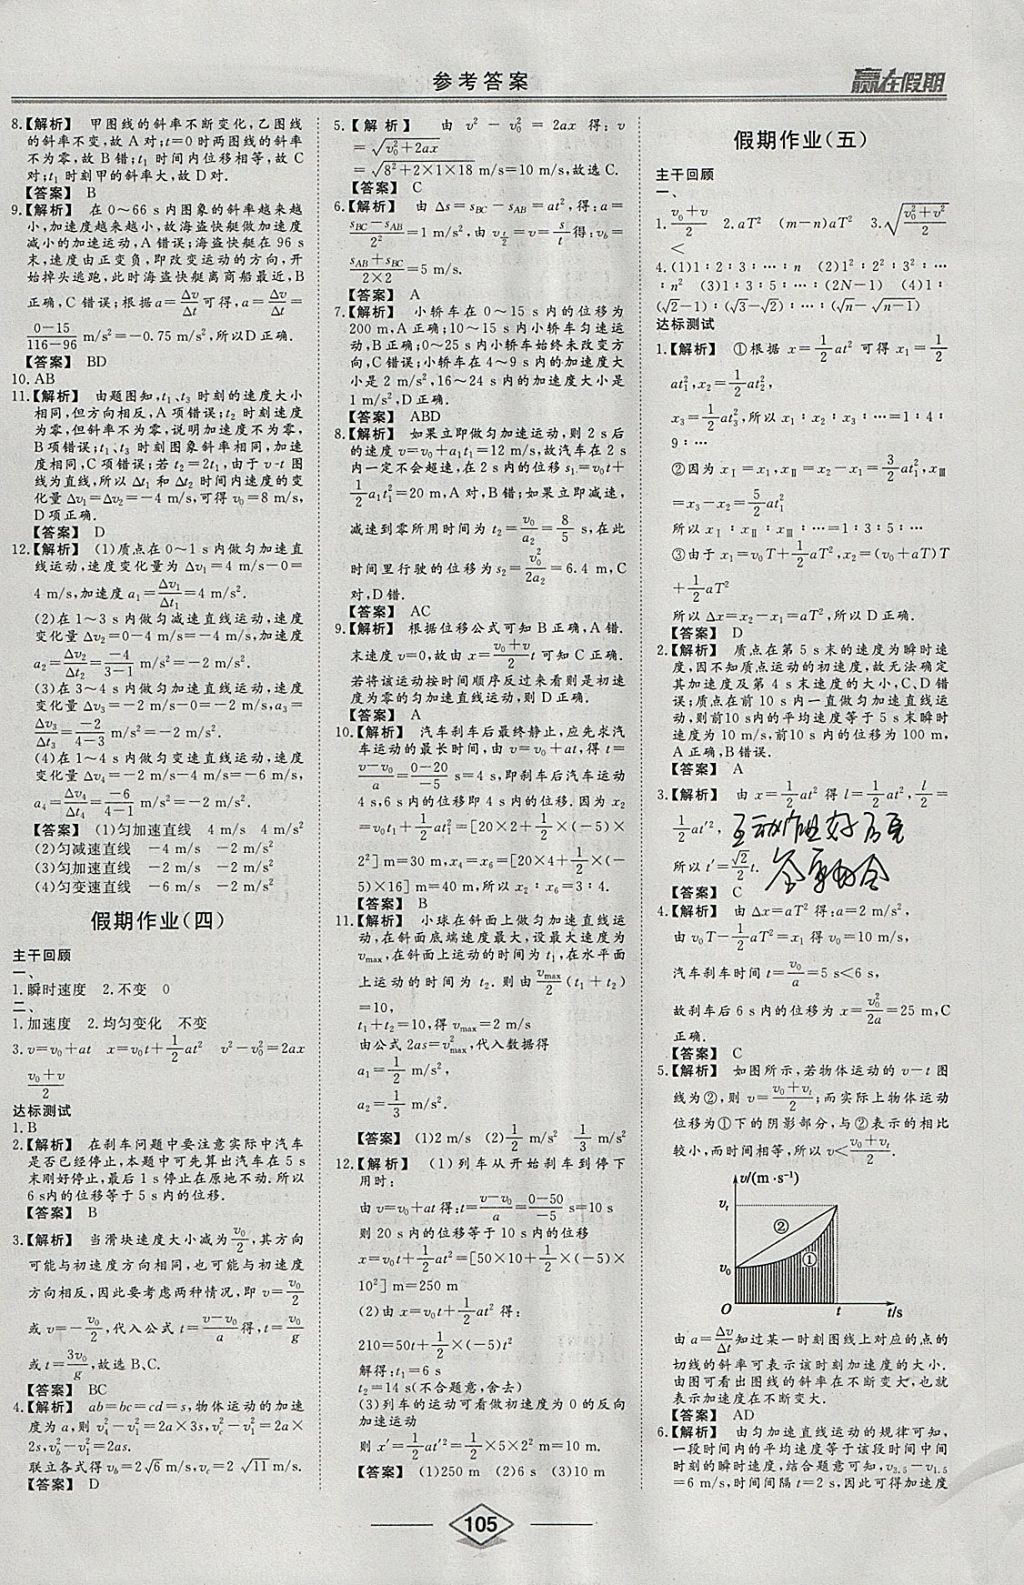 参考答案
赢在假期
8.【解析】 甲图线的斜率不断变化,乙图线
的斜率不变,故 A 对;t=0 时两图线的斜率
不为零,故 B 错;t₁ 时间内位移相等,故 C
对;t₁ 时刻甲的斜率大,故 D 对.
【答案】 B
9.【解析】 在 0～66 s 内图象的斜率越来越
小,加速度越来越小,故海盗快艇做加速度
减小的加速运动,A 错误;海盗快艇在 96 s
末,速度由正变负,即改变运动的方向,开
始掉头逃跑,此时海盗快艇离商船最近,B
正确,C 错误;根据 a=Δv/Δt 可得,a=Δv/Δt=
(0-15)/(116-96) m/s²=-0.75 m/s²,所以D正确.
【答案】 BD
10. AB
11.【解析】 由题图知,t₁、t₃ 时刻的速度大小
相同,但方向相反,A 项错误;t₂ 时刻速度
为零,但斜率不为零,说明加速度不为零,
B项错误;t₁、t₃ 时刻图象斜率相同,加速
度相同,C项错误;若 t₂=2t₁,由于 v-t 图
线为直线,所以 Δt₁ 和 Δt₂ 时间内速度的变
化量 Δv₁=Δv₂=-4 m/s,可得 v₀=8 m/s,
D项正确.
【答案】 D
12.【解析】 (1)质点在 0～1 s 内做匀加速直
线运动,速度变化量为 Δv₁=4 m/s-0=
4 m/s,加速度 a₁=Δv₁/Δt₁=4 m/s²
(2)在 1～3 s 内做匀减速直线运动,速度
变化量 Δv₂=0-4 m/s=-4 m/s,加速度
a₂=Δv₂/Δt₂=-4/(3-1) m/s²=-2 m/s²
(3)在 3～4 s 内做匀加速直线运动,速度
变化量 Δv₃=-2 m/s-0=-2 m/s,a₃=
Δv₃/Δt₃=-2/(4-3) m/s²=-2 m/s².
(4)在 1～4 s 内做匀变速直线运动,速度
变化量 Δv₄=-2 m/s-4 m/s=-6 m/s,
a₄=Δv₄/Δt₄=-6/(4-1) m/s²=-2 m/s².
【答案】 (1)匀加速直线 4 m/s 4 m/s²
(2)匀减速直线 -4 m/s -2 m/s²
(3)匀加速直线 -2 m/s -2 m/s²
(4)匀变速直线 -6 m/s -2 m/s²
假期作业(四)
主干回顾
一、
1.瞬时速度 2.不变 0
二、
1.加速度 2.均匀变化 不变
3.v=v₀+at x=v₀t+½at² v²-v₀²=2ax
(v₀+v)/2
达标测试
1.B
2.【解析】 在刹车问题中要注意实际中汽车
是否已经停止,本题中可先算出汽车在 5 s
末刚好停止,最后 1 s停止在原地不动.所以
6 s内的位移等于5 s内的位移.
【答案】 B
3.【解析】 当滑块速度大小减为v₀/2,其方向
可能与初速度方向相同,也可能与初速度
方向相反,因此要考虑两种情况,即 v=v₀/2
或 v=-v₀/2,代入公式 t=(v-v₀)/a得,t=v₀/g
或t=3v₀/g,故选B、C.
【答案】 BC
4.【解析】 ab=bc=cd=s,物体运动的加速
度为 a,则 v₄²-v₁²=2a×3s,v_c²-v₁²=2a×
2s,v_b²-v₁²=2as.
联立各式得 v_b=2√6 m/s,v_c=2√11 m/s.
【答案】 D
5.【解析】 由 v²-v₀²=2ax 得:v
=√(v₀²+2ax)
=√(8²+2×1×18) m/s=10 m/s,故选 C.
【答案】 C
6.【解析】 由 Δs=s_BC-s_AB=at²,得:a=
(s_BC-s_AB)/2²=1 m/s²,由 v_(t/2)=v̄=s/t得:v_b=
(s_AB+s_BC)/(2×2)=5 m/s.
【答案】 A
7.【解析】 小轿车在 0～15 s 内的位移为
200 m,A 正确;10～15 s 内小轿车匀速运
动,B正确;0～25 s内小轿车始终未改变方
向,C错误;小轿车在 4～9 s内的加速度大
小是 2 m/s²,16～24 s 内的加速度大小是
1 m/s²,D正确.
【答案】 ABD
8.【解析】 如果立即做匀加速运动,则 2 s后
的速度 v=v₀+a₁t₁=12 m/s,故汽车在 2 s
内一定不会超速,在 2 s 内的位移 s₁=v₀t+
½a₁t₁²=20 m,A 对,B 错;如果立即减速,
减速到零所用时间为 t₂=v₀/a₂=8/5 s,在此
时间里行驶的位移为 s₂=v₀²/2a₂=6.4 m,C
对,D错.
【答案】 AC
9.【解析】 根据位移公式可知 B正确,A错.
末速度 v=0,故由公式 x=(v₀+v)/2 t 可知 C错.
若将该运动按时间顺序反过来看则是初速
度为零的匀加速直线运动,则 D错.
【答案】 A
10.【解析】 汽车刹车后最终静止,应先求汽
车运动的最长时间,由 v=v₀+at,得 t=
(v-v₀)/a=(0-20)/-5 s=4 s,即刹车后汽车运动
4 s,6 s 内的位移即 4 s 内的位移.因为 x₂
=v₀t₁+½at₁²=[20×2+½×(-5)×
2²] m=30 m,x₄=x₆=[20×4+½×(-
5)×16] m=40 m,所以 x₂∶x₆=3∶4.
【答案】 B
11.【解析】 小球在斜面上做匀加速直线运
动,在斜面底端速度最大,设最大速度为
v_max,在斜面上运动的时间为 t₁,在水平面
上运动的时间为 t₂.则由v_max/2(t₁+t₂)
=10,
t₁+t₂=10,得 v_max=2 m/s
由公式 2as=v_max²,代入数据得
a₁=½ m/s²,
a₂=⅓ m/s².
【答案】 (1)2 m/s (2)½ m/s² ⅓ m/s²
12.【解析】 (1)列车从开始刹车到停下
用时:
由v=v₀+at得:t=(v-v₀)/a=(0-50)/-5 s=10 s
则 20 s内的位移等于 10 s内的位移
x=v₀t+½at²=[50×10+½×(-5)×
10²] m=250 m
(2)由 x=v₀t+½at²得:
210=50t+½×(-5)t²
解得:t₁=6 s
t₂=14 s(不合题意,舍去)
(3)列车的运动可看做初速度为 0 的反向
加速运动
则 x′=½at′²=½×5×2² m=10 m
【答案】 (1)250 m (2)6 s (3)10 m
假期作业(五)
主干回顾
一、
1.(v₀+v)/2 2.aT² (m-n)aT² 3.√((v₀²+v²)/2)
<
4.(1)1∶2∶3∶…∶n (2)1²∶2²∶3²∶…
∶n² (3)1∶3∶5∶…∶(2N-1) (4)1∶
(√2-1)∶(√3-√2)∶…∶(√n-√(n-1))
达标测试
1.【解析】 ①根据 x=½at² 可得 x₁=½
at₁²,x₂=½at₂²,
x₃=½at₃²,所以 x₁∶x₂∶x₃∶…=1∶4∶
9∶…
②因为 xⅠ=x₁,xⅡ=x₂-x₁=3/2at₁²,xⅢ
=x₃-x₂=5/2at₁²
所以 xⅠ∶xⅡ∶xⅢ∶…=1∶3∶5∶…
③由于 x₁=v₀T+½aT²,x₂=(v₀+aT)T
+½aT²
所以 Δx=x₂-x₁=aT²,所以 D正确.
【答案】 D
2.【解析】 质点在第 5 s末的速度为瞬时速
度,因不知质点运动的初速度,故无法确定
其加速度及第 4 s末速度的大小,C、D错
误;质点在前 10 s内一直做匀加速直线运
动,则前10 s内的平均速度等于5 s末瞬时
速度为10 m/s,前10 s内的位移为 100 m,
A 正确,B错误.
【答案】 A
3.【解析】 由 x=½at² 得 l=½at²,l/2=
½at′²,
所以 t′=√2/2 t.
【答案】 C
4.【解析】 由 Δx=aT²得:a=2 m/s²,
由 v₀T-½aT²=x₁得 v₀=10 m/s,
汽车刹车时间 t=v₀/a=5 s<6 s,
故刹车后 6 s内的位移为 x=v₀²/2a=25 m,C
正确.
【答案】 C
5.【解析】 如图所示,若物体运动的 v-t 图
线为②,则 v̄=(v₀+v_t)/2;而实际上物体运动
位移为①下的阴影部分,与②表示的相比
较小,而时间相等,所以 v̄<(v₀+v_t)/2.
v/(m·s⁻¹)
v_t
②
①
v₀
O
t
t/s
由 a=Δv/Δt知过某一时刻图线上对应的点的
切线的斜率可表示该时刻加速度的大小.
由图可看出图线的斜率在不断变大,也就
表示加速度在不断变大.
【答案】 AD
6.【解析】 由匀加速直线运动的规律可知,
一段时间内的平均速度等于该段时间中间
时刻的瞬时速度,结合题意可知,v₃.₅-v₁.₅
=6 m/s,时间间隔 t=2 s,所以可得加速度
105